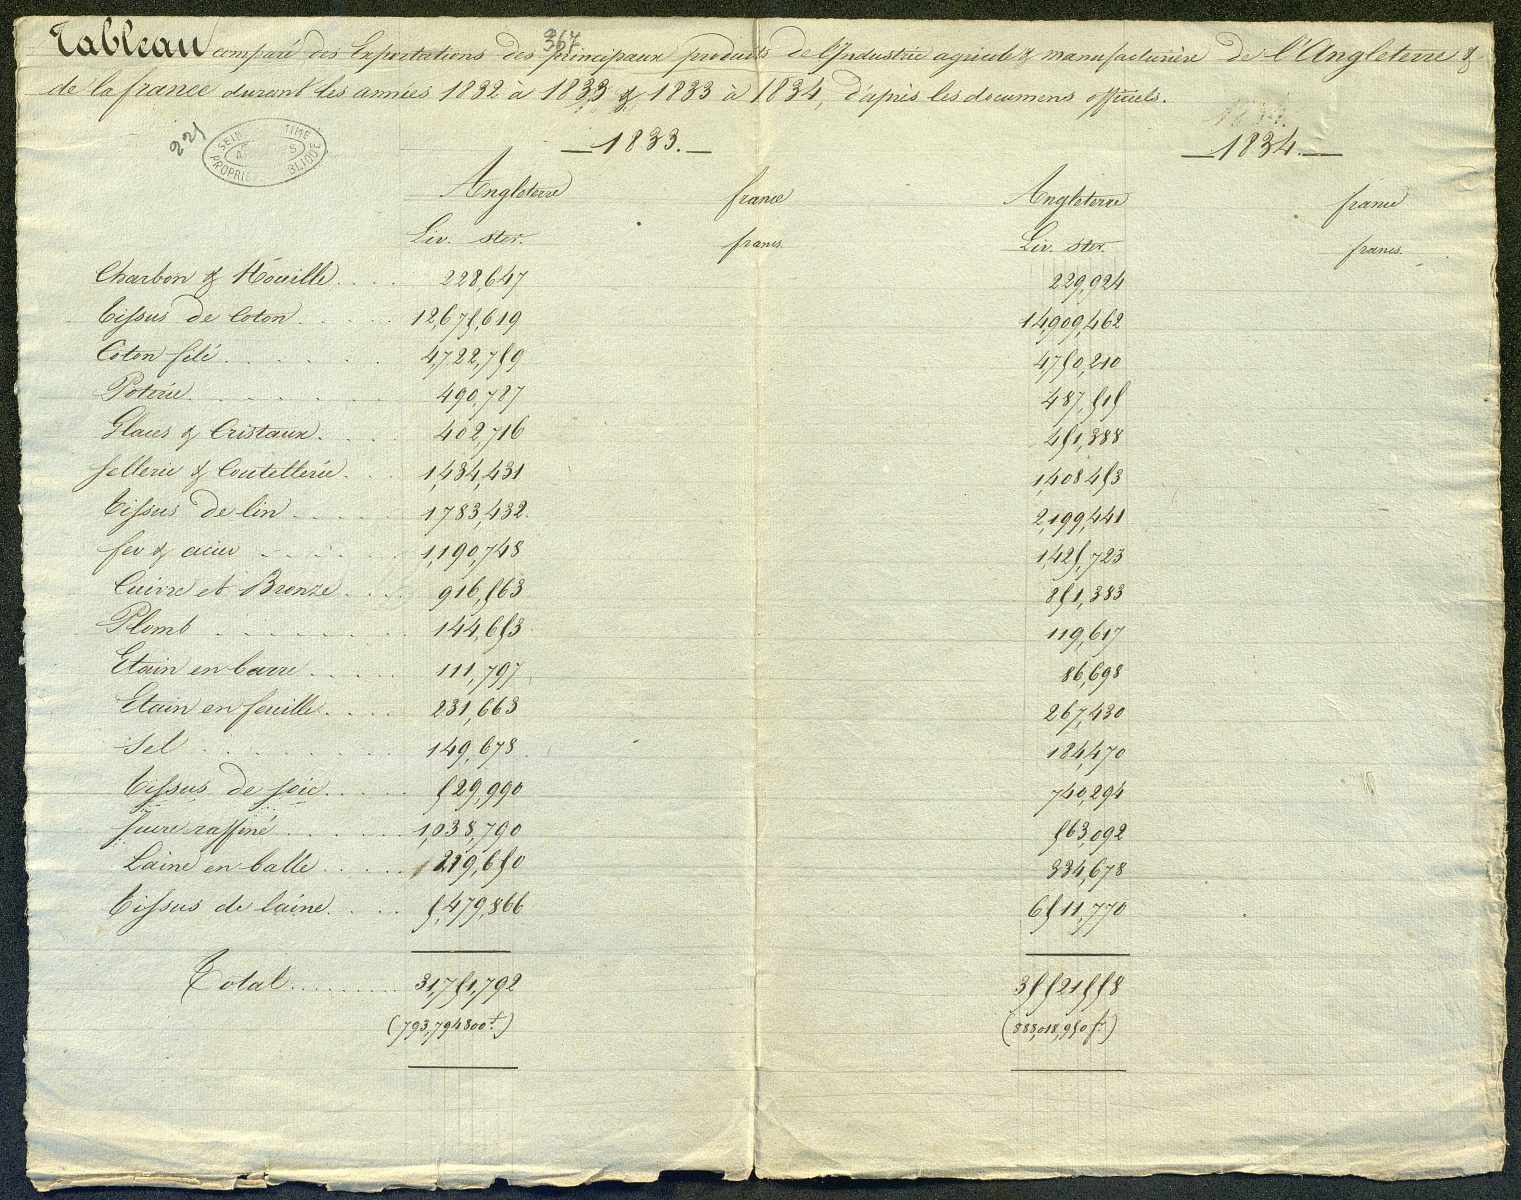 367
Tableau comparé des Exportations des principaux produits de l'Industrie agricole & manufacturière de l'Angleterre &
de la france durant les années 1832 à 1833 & 1833 à 1834, d'après les documens officiels.
221
SEINE TIME
PROPRIÉTÉ PUBLIQUE
1833. 1834.
Angleterre france Angleterre france
Liv. ster. francs. Liv. ster. francs.
Charbon & Houille.... 228,647 229,924
Tissus de Coton..... 12,675,619 14,909,462
Coton filé...... 4,722,759 4,750,210
Poterie....... 490,727 487,515
Glaces & Cristaux... 402,716 451,388
Sellerie & Coutellerie... 1,434,431 1,408453
Tissus de lin..... 1783,432. 2,199,441
fer & acier..... 1,190,748 1,425,723
Cuivre et Bronze... 916,563 851,383
Plomb...... 144,653. 119,617
Etain en barre..... 111,797 86,698
Etain en feuille.... 231,663 267,430
Sel....... 149,678. 184,470
Tissus de soie..... 529,990 740,294
Sucre raffiné...... 1,038,790 563,092
Laine en balle..... 219,650 334,678
Tissus de laine.... 5,479,866 6511,770
Total........ 31,751,792 35521558
(793,794800f.) (888,018,950f.)